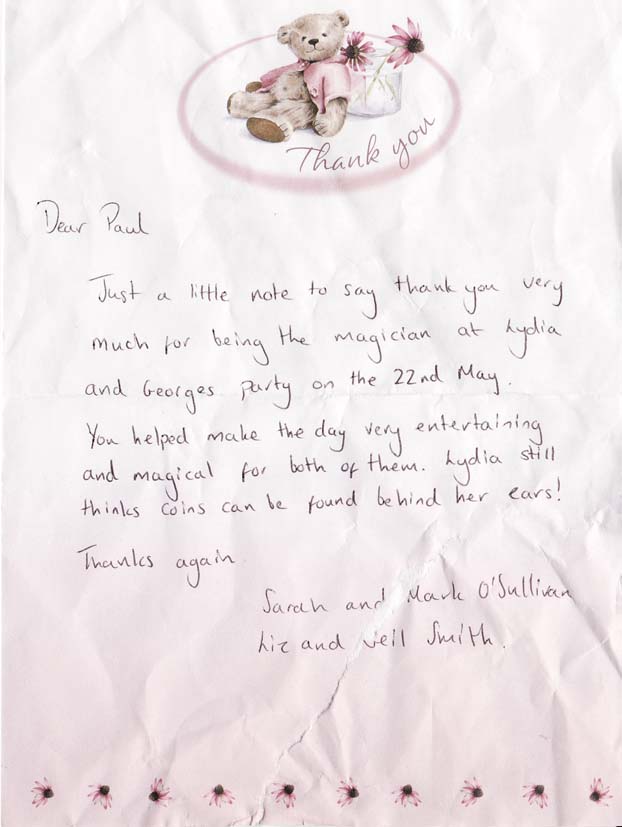 Thank you
Dear Paul
Just a little note to say thank you very
much for being the magician at Lydia
and Georges party on the 22nd May.
You helped make the day very entertaining
and magical for both of them. Lydia still
thinks coins can be found behind her ears!
Thanks again
Sarah and Mark O'Sullivan
Liz and Neil Smith.